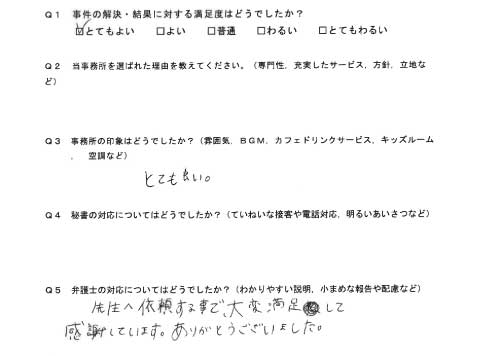 Q1 事件の解決・結果に対する満足度はどうでしたか?
☑とてもよい □よい □普通 □わるい □とてもわるい
Q2 当事務所を選ばれた理由を教えてください。(専門性，充実したサービス，方針，立地な
ど)
Q3 事務所の印象はどうでしたか?(雰囲気，BGM，カフェドリンクサービス，キッズルーム
， 空調など)
とても良い。
Q4 秘書の対応についてはどうでしたか?(ていねいな接客や電話対応，明るいあいさつなど)
Q5 弁護士の対応についてはどうでしたか?(わかりやすい説明，小まめな報告や配慮など)
先生へ依頼する事で、大変満足して
感謝しています。ありがとうございました。